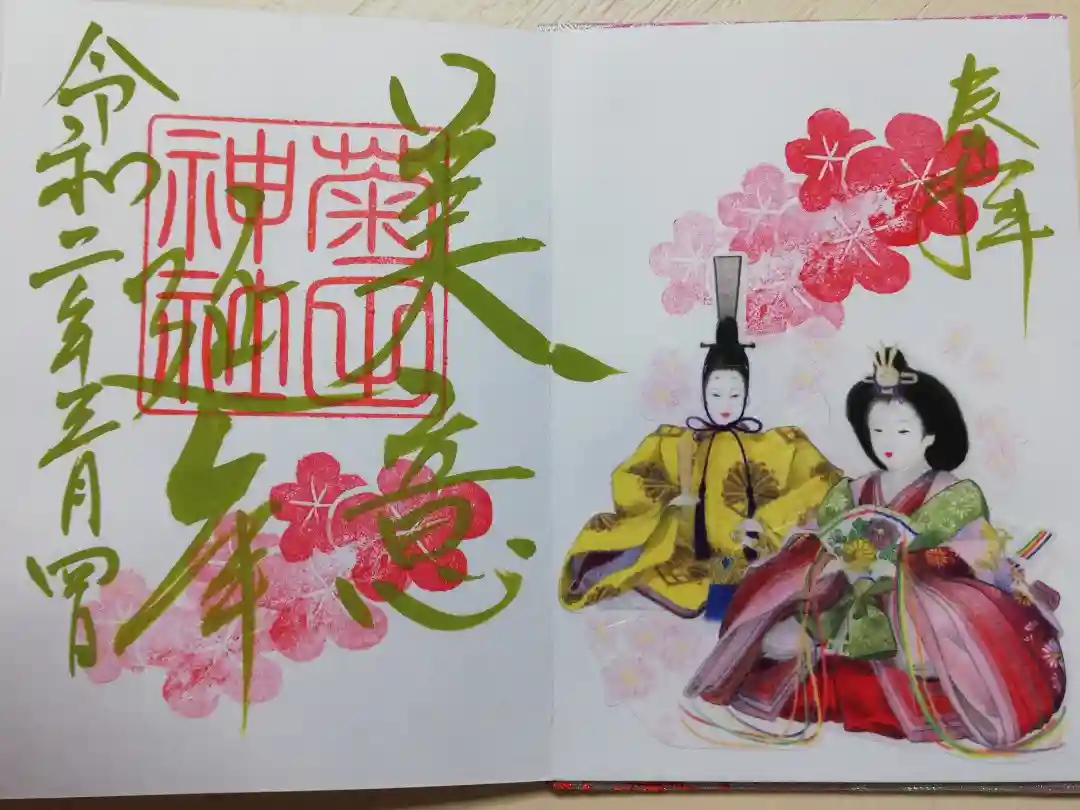 奉拝
美意
延年
菊田
神社
令和二年三月四日